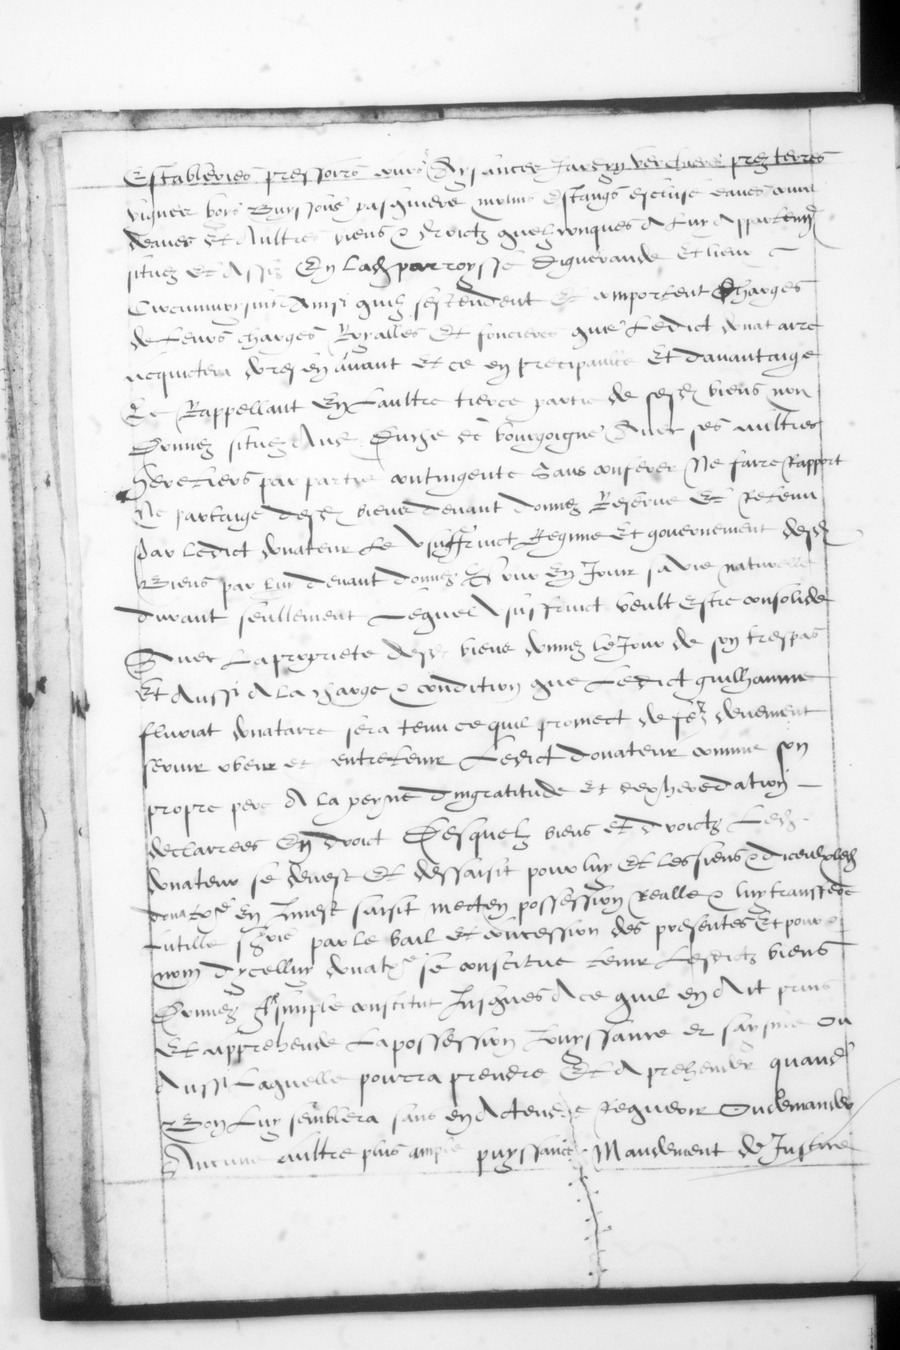 Establevies pressoirs cours Aysances Jardin vercheres prez terres
vignes boys Buyssons pasquiers molins Estangs escluse eaues cours
deaues Et Aultres biens & droictz quelzconques A luy Appartenans
situez Et Assis En lad parroysse Diguerande Et lieux
Circumvoysins Ainsi quilz sestendent Et comportent Charges
de leurs charges Royalles Et foncieres que Ledict donataire
acquictera doresenavant Et ce en precipuite Et davantaige
Et Rappellant En Laultre tierce partie de sesd biens non
Donnez situez Aud Duche de bourgoigne Avec ses aultres
heretiers par partie contingente Sans conferer Ne faire Rapport
Ne partaige desd biens devant donnez Reserve Et Retenu
Par ledict donateur Le Usuffruict Regime Et gouvernement desd
Biens par luy devant donnez En Jouir sa vie naturelle
durant seullement Lequel Usuffruict veult Estre consolide
Avec La propriete desd biens donnez le Jour de son trespas
Et Aussi A la charge & condition que Ledict guilhaume
fluriat donataire sera tenu ce quil promect de fe deuement
servir obeir et entretenir Ledict donateur comme son
propre pere A la peyne dingratitude Et dexheredation
declairees En droict Desquelz biens et droictz Led
donateur se devest Et dessaisit pour luy Et les siens & diceulx led
donatre En Invest saisit mect en possession Realle & luy transfere
Lutille srie par le bail Et concession des presentes Et pour &
nom dycelluy donatre se constitue tenir Lesdictz biens
Donnez simple constitut Jusques A ce quil en Ait prins
Et apprehende La possession Jouyssance et saysine Ou
Aussi Laquelle pourra prendre Et Aprehender quand
Bon Luy semblera sans en Actendre Requerir Ou demander
Aucune aultre plus ample puyssance Mandement de Justice